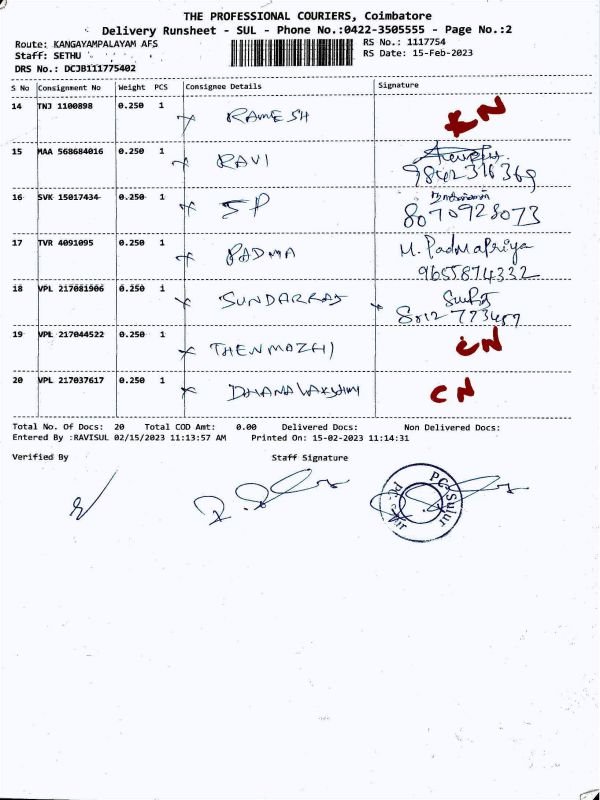 THE PROFESSIONAL COURIERS, Coimbatore
Delivery Runsheet - SUL - Phone No.:0422-3505555 - Page No.:2
Route: KANGAYAMPALAYAM AFS
RS No.: 1117754
Staff: SETHU
RS Date: 15-Feb-2023
DRS No.: DCJB111775402
S No Consignment No Weight PCS Consignee Details Signature
14 TNJ 1100898 0.250 1 RAMESH
15 MAA 568684016 0.250 1 RAVI
16 SVK 15017434 0.250 1 SP 8070928073
17 TVR 4091095 0.250 1 PADMA M. Padmapriya
9655874332
18 VPL 217081906 0.250 1 SUNDARRAJ
19 VPL 217044522 0.250 1 THENMOZHI CN
20 VPL 217037617 0.250 1 DHANALAKSHMI CN
Total No. Of Docs: 20 Total COD Amt: 0.00 Delivered Docs: Non Delivered Docs:
Entered By :RAVISUL 02/15/2023 11:13:57 AM Printed On: 15-02-2023 11:14:31
Verified By Staff Signature
PC-Sulur